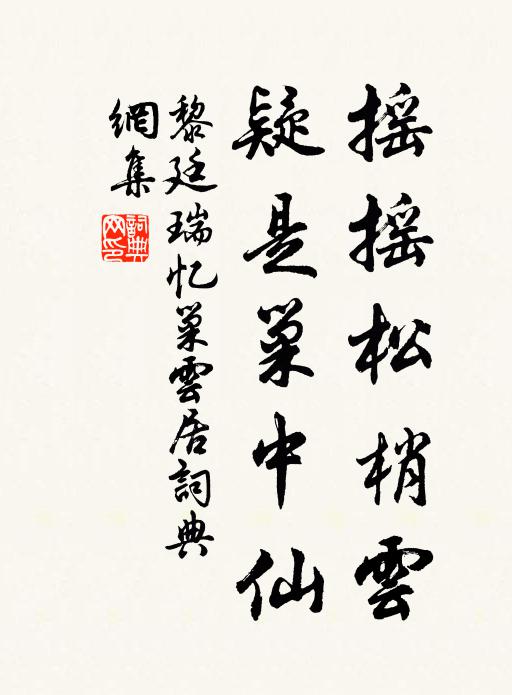 摇摇松梢雲
疑是巢中仙
黎廷瑞忆巢雲居詞典
網集
詞典
网印